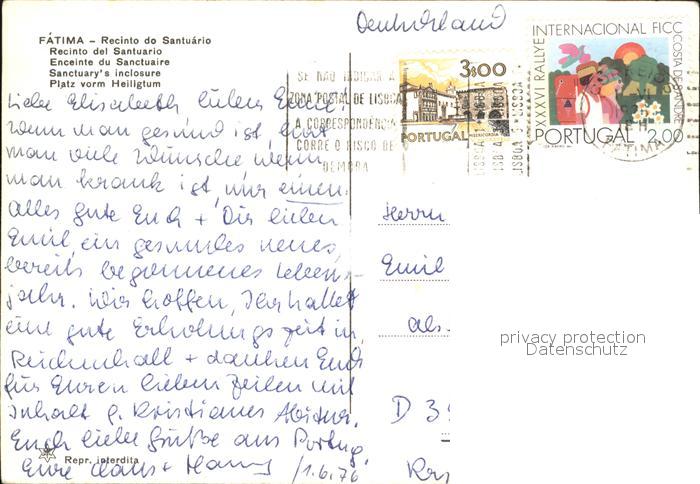 Deutschland
FÁTIMA – Recinto do Santuário
Recinto del Santuario
Enceinte du Sanctuaire
Sanctuary's inclosure
Platz vorm Heiligtum
SE NÃO INDICAR A
ZONA POSTAL DE LISBOA
A CORRESPONDÊNCIA
CORRE O RISCO DE
DEMORA
3$00
MISERICÓRDIA
PORTUGAL
XXXVI RALLYE INTERNACIONAL FICC COSTA DE
PORTUGAL 2.00
FÁTIMA
Liebe Elisabeth, lieber Emil,
wenn man gesund ist, hat
man viele Wünsche, wenn
man krank ist, nur einen.
Alles gute Euch + Dir lieber
Emil, ein gesundes neues,
bereits begonnenes Lebens-
jahr. Wir hoffen, Ihr hattet
eine gute Erholungszeit in
Reichenhall + danken Euch
für Euren lieben Zeilen mit
Inhalt z. Kristianes Abitur.
Euch liebe Grüße aus Portug.
Eure Claus + Hanny /1.6.76
Herrn
Emil
als
D 35
Repr. interdita
privacy protection
Datenschutz